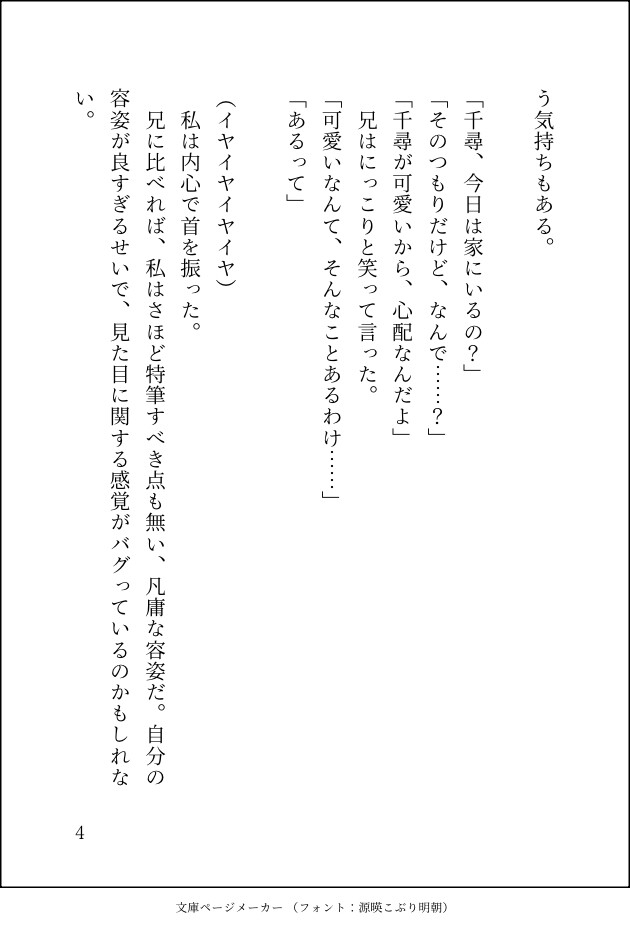 う気持ちもある。
「千尋、今日は家にいるの？」
「そのつもりだけど、なんで……？」
「千尋が可愛いから、心配なんだよ」
　兄はにっこりと笑って言った。
「可愛いなんて、そんなことあるわけ……」
「あるって」
（イヤイヤイヤイヤ）
　私は内心で首を振った。
　兄に比べれば、私はさほど特筆すべき点も無い、凡庸な容姿だ。自分の
容姿が良すぎるせいで、見た目に関する感覚がバグっているのかもしれな
い。
4
文庫ページメーカー（フォント：源暎こぶり明朝）